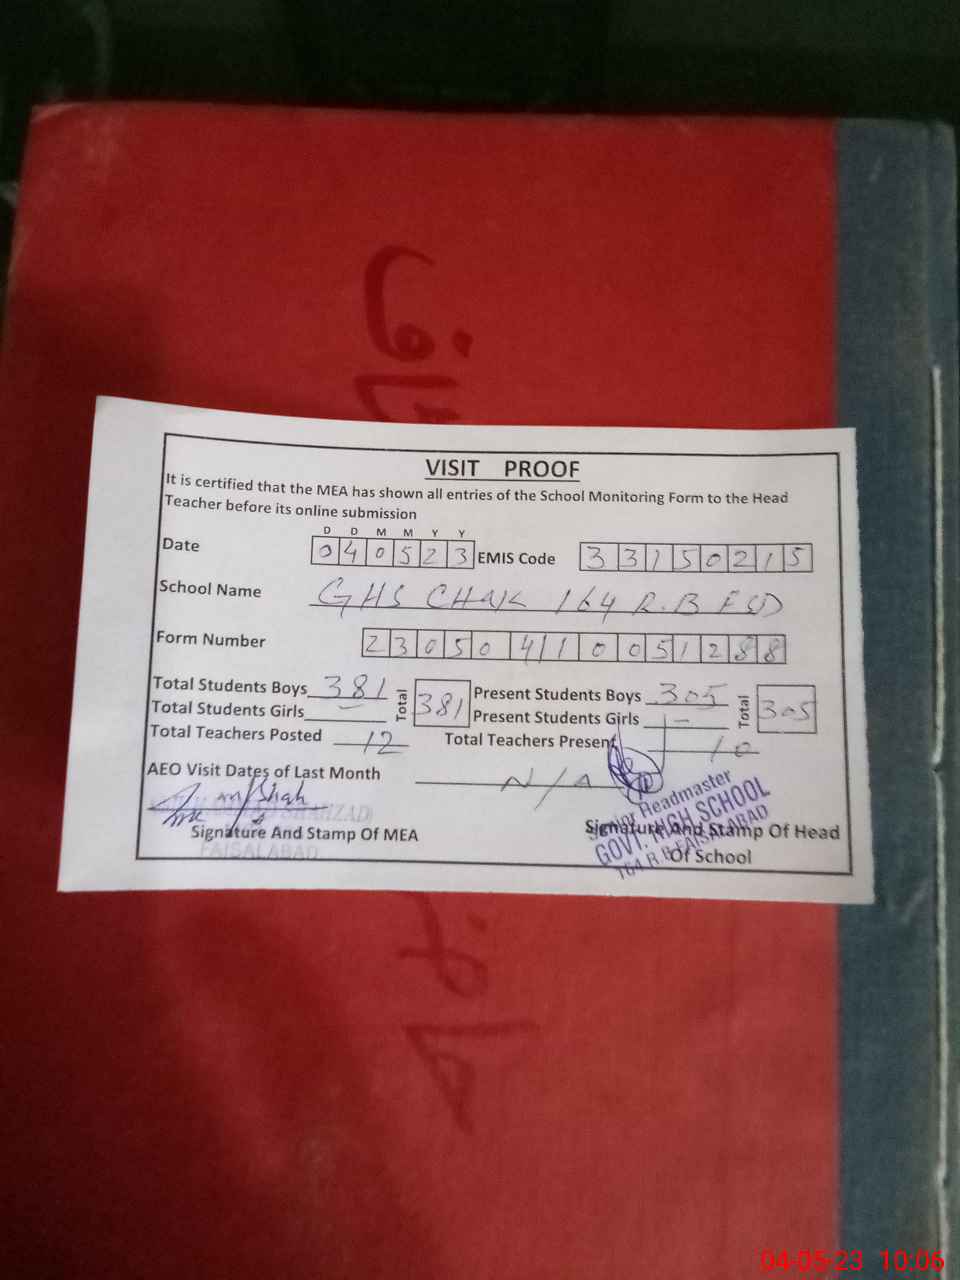 VISIT PROOF
It is certified that the MEA has shown all entries of the School Monitoring Form to the Head
Teacher before its online submission
D D M M Y Y
Date 0 4 0 5 2 3 EMIS Code 3 3 1 5 0 2 1 5
School Name GHS CHAK 164 R.B FSD
Form Number 2 3 0 5 0 4 1 0 0 5 1 2 8 8
Total Students Boys 381 Total 381 Present Students Boys 305 Total 305
Total Students Girls Present Students Girls -
Total Teachers Posted 12 Total Teachers Present 10
AEO Visit Dates of Last Month N/A
SHAHZAD
Signature And Stamp Of MEA
FAISALABAD
Senior Headmaster
GOVT. HIGH SCHOOL
164 R B FAISALABAD
Signature And Stamp Of Head
Of School
04-05-23 10:06